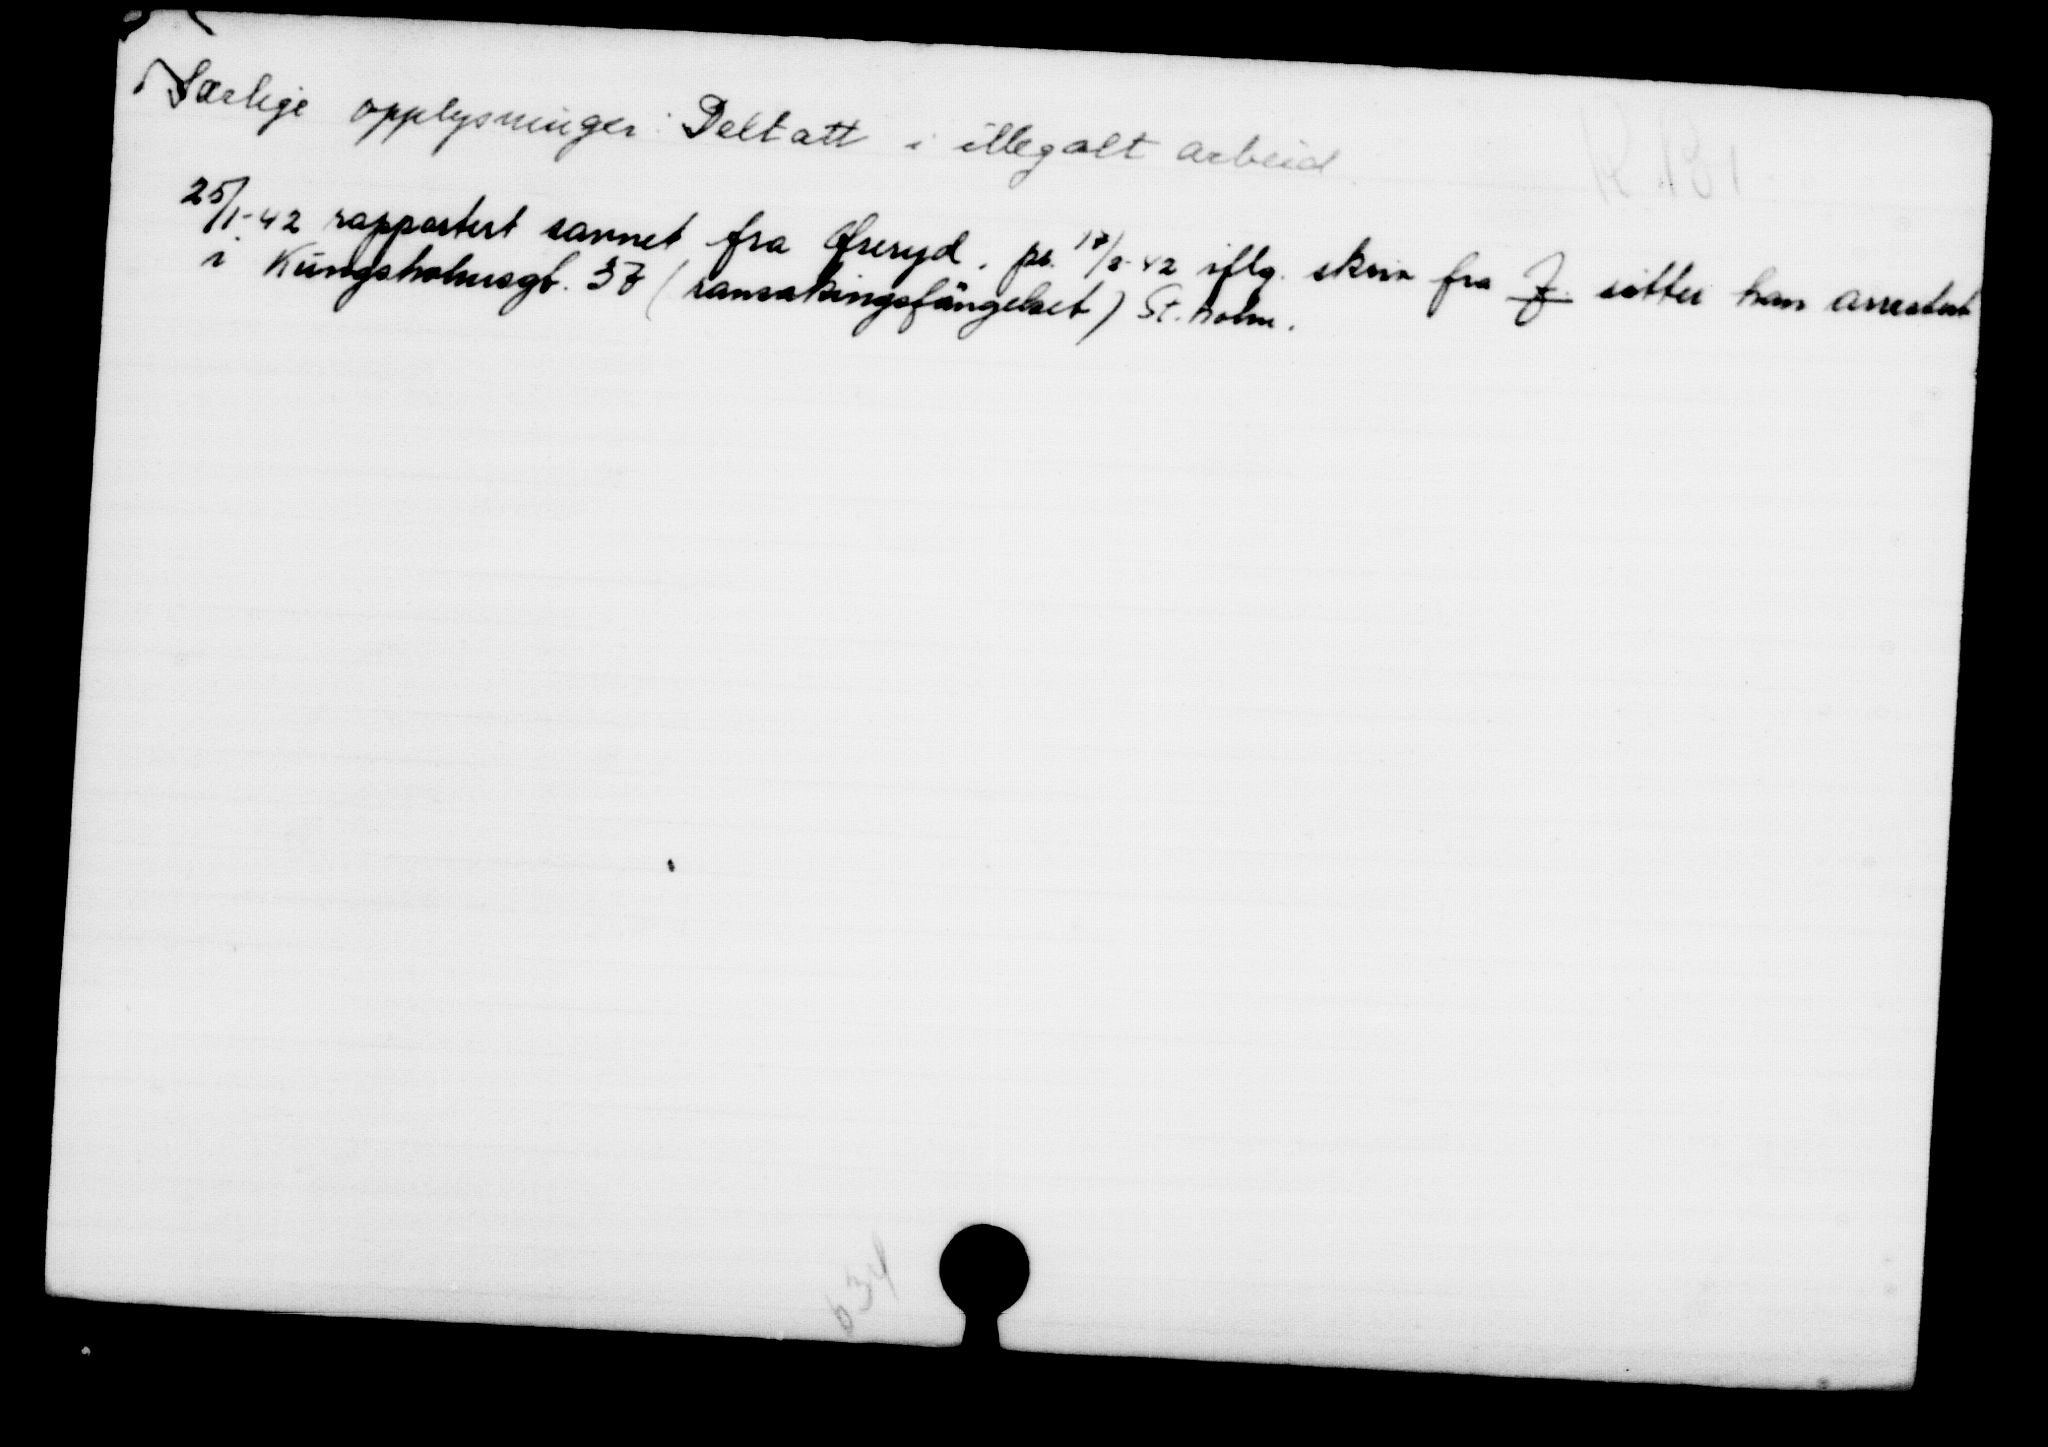 Særlige opplysninger: Deltatt i illegalt arbeid
25/1-42 rapportert savnet fra Øreryd. pr. 17/2-42 iflg. skriv fra J. sitter han arrestert
i Kungsholmsgt. 37 (ransakingsfängelset) St.holm.
634